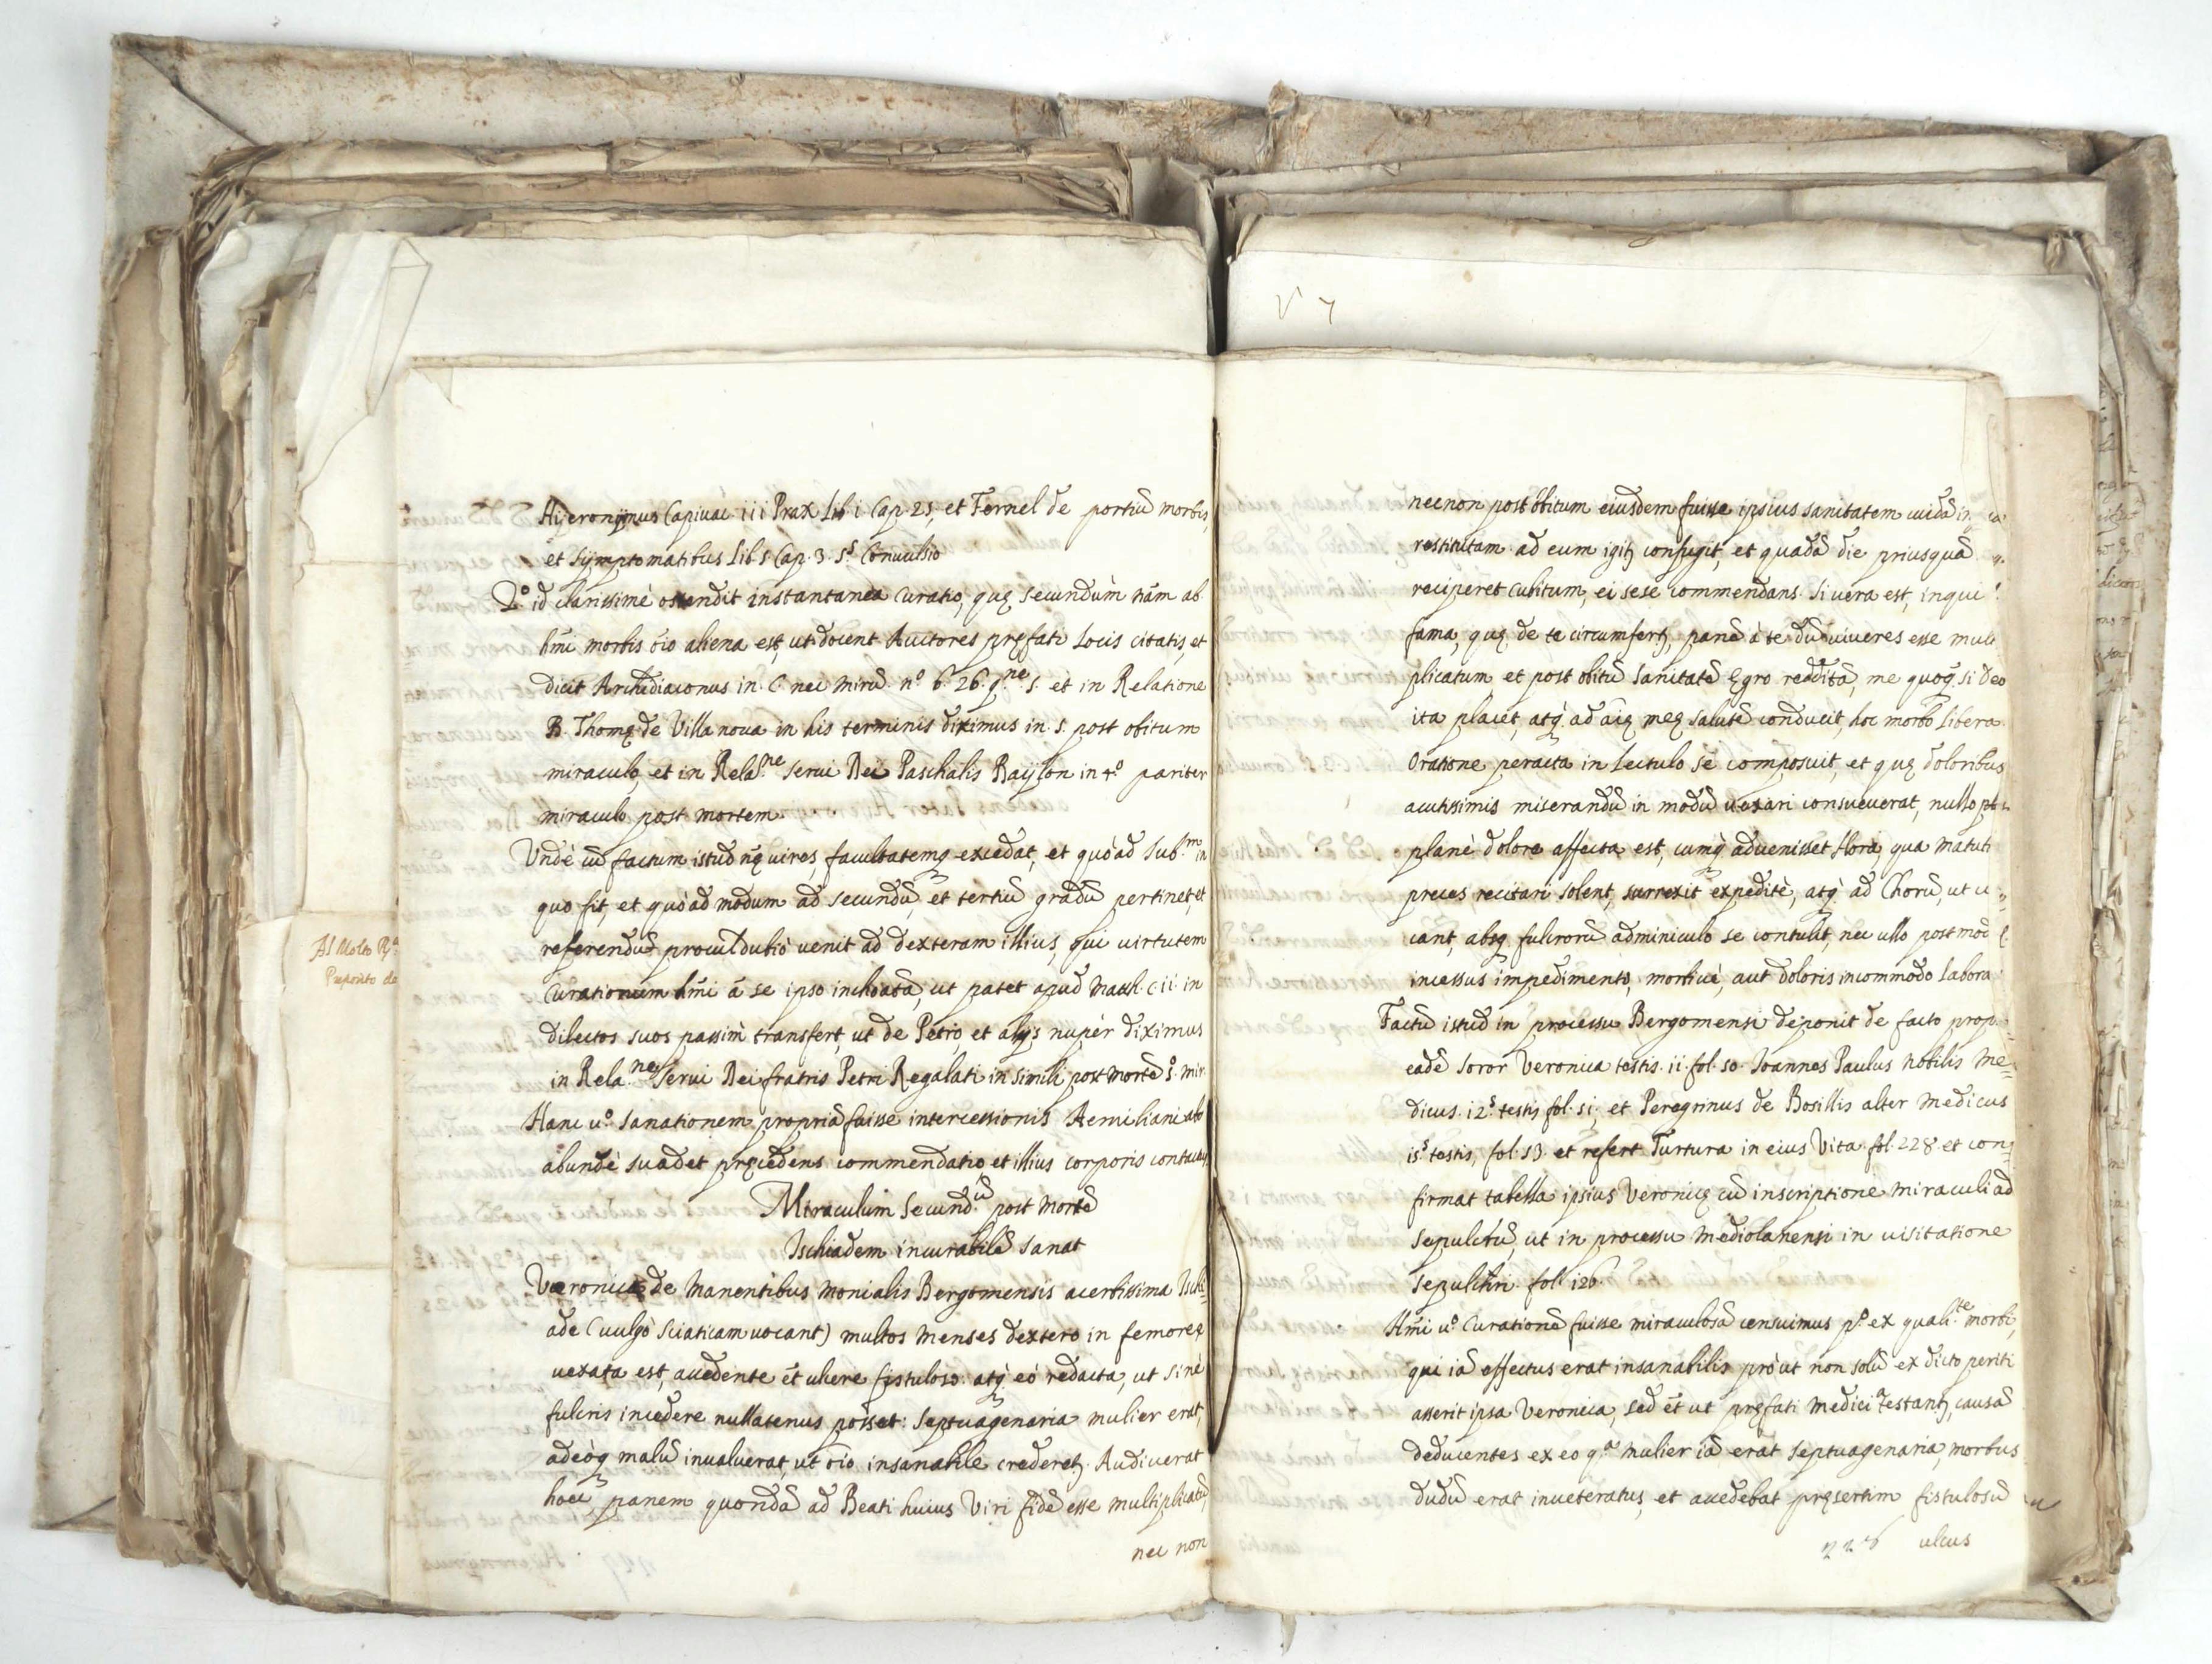 Hijeronijmus Capivac. iii Prax Lib i Cap. 25, et Fernel de portiũ morbis,
et sijmptomatibus lib. 5 Cap. 3. §. Convulsio
2.º id clarissimè ostendit instantanea curatio, quę secundùm nãm ab
hmi morbis oio aliena est, ut docent Auctores pręfati Locis citatis, et
dicit Archidiaconus in C. nec mirũ. nº 6. 26. q.ne 5. et in Relatione
B. Thomę de Villa nova in his terminis diximus in 5. post obitum
miraculo, et in Rela.ne servi Dei Paschalis Baijlon in 4.º pariter
miraculo post mortem.
Undè cũ factum istud nę vires, facultatemq excedat, et quò ad sub.m in
quo fit, et quò ad modum ad secundũ, et tertiũ gradũ pertinet, et
referendũ procul dubiò venit ad dexteram illius, qui virtutem
curationum hmi à se ipso inchoatã, ut patet apud Matth. c. ii. in
dilectos suos passim transfert, ut de Petro et alijs nupèr diximus
in Rela.ne servi Dei fratris Petri Regalati in simili post mortẽ 5. mir.
Hanc v.º sanationem propriã fuisse intercessionis Aemiliani ab
abundè suadet pręcedens commendatio, et illius corporis contactus
Miraculum Secund.ũ post mortẽ
Ischiadem incurabilẽ sanat
Veronica de Manentibus Monialis Bergomensis acerbissima Ischi=
ade (vulgò sciaticam vocant) multos menses dextero in femore
vexata est, accedente ẽt ulcere fistuloso. atq. eò redacta, ut sinè
fulcris incedere nullatenus posset: septuagenaria mulier erat,
adeòq malũ invaluerat, ut oio insanabile crederet. Audiverat
hoec panem quondã ad Beati huius Viri fidẽ esse multiplicatũ,
nec non
V 7
necnon post obitum eiusdem fuisse ipsius sanitatem cuidã in
restitutam. ad eum igit confugit, et quadã die priusquã
reciperet cubitum, ei sese commendans. Si vera est, inqui
fama, quę de te circumfert, panẽ à te dũ viveres esse mul
plicatum et post obitũ sanitatẽ ęgro redditã, me quoq. si deo
ita placet, atq. ad aię meę salutẽ conducit, hoc morbo libera.
Oratione peracta in Lectulo sè composuit, et quę doloribus
acutissimis miserandũ in modũ vexari consueverat, nullo
planè dolore affecta est, cumq. advenisset Hora, qua matuti
preces recitari solent, surrexit expeditè, atq. ad Chorũ, ut
cant, absq. fulcrorũ adminiculo se contulit, nec ullo post mod
incessus impedimento, morbivè, aut doloris incommodo labora
Factũ istud in processu Bergomensi deponit de facto prop
eadẽ soror Veronica testis. ii fol. 50. Ioannes Paulus nobilis Me=
dicus. i2.s testis fol. 5i. et Peregrinus de Bosillis alter Medicus
i5.s testis, fol. 53. et refert Turtura in eius Vita. fol. 228. et con=
firmat tabella ipsius Veronicę cũ inscriptione miraculi ad
sepulcrũ, ut in processu Mediolanensi in visitatione
sepulchri. fol. i26.
Hmi v.º curationẽ fuisse miraculosã censuimus p.º ex quali.te morbi,
qui iã effectus erat insanabilis pròut non solũ ex dicto periti
asserit ipsa Veronica, sed ẽt ut pręfati Medici testant, causã
deducentes ex eo q.a mulier iã erat septuagenaria, morbus
dudũ erat inveteratus, et accedebat pręsertim fistulosũ
226 ulcus
Al Molto R.
Preposito de